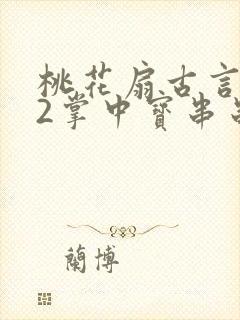 桃花扇古言
2掌中寶串
蘭博